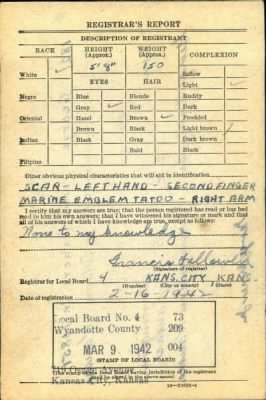 REGISTRAR'S REPORT
DESCRIPTION OF REGISTRANT
RACE
HEIGHT (Approx.)
WEIGHT (Approx.)
COMPLEXION
5' 8"
150
White ✓
Sallow
EYES
HAIR
Light ✓
Negro
Blue
Blonde
Ruddy
Gray ✓
Red
Dark
Oriental
Hazel
Brown ✓
Freckled
Brown
Black
Light brown
Indian
Black
Gray
Dark brown
Bald
Black
Filipino
Other obvious physical characteristics that will aid in identification
SCAR - LEFT HAND - SECOND FINGER
MARINE EMBLEM TATOO - RIGHT ARM
I certify that my answers are true; that the person registered has read or has had
read to him his own answers; that I have witnessed his signature or mark and that
all of his answers of which I have knowledge are true, except as follows:
None to my knowledge
(Signature of registrar)
Registrar for Local Board 4 KANS. CITY KANS.
(Number) (City or county) (State)
Date of registration 2-16-1942
Local Board No. 4 73
Wyandotte County 209
MAR 9 1942 004
(STAMP OF LOCAL BOARD)
Kansas City, Kansas